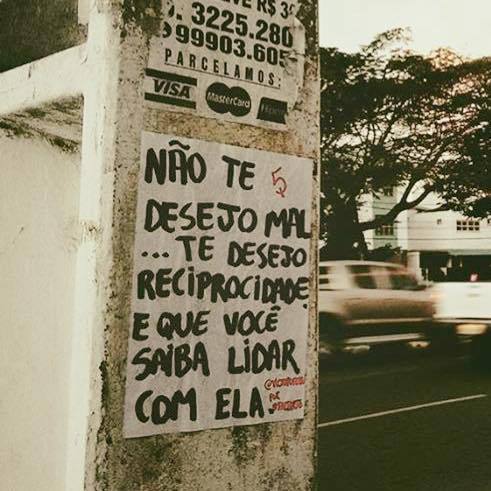 3225.280
99903.605
PARCELAMOS:
VISA
MasterCard
NÃO TE
DESEJO MAL
... TE DESEJO
RECIPROCIDADE
E QUE VOCÊ
SAIBA LIDAR
COM ELA